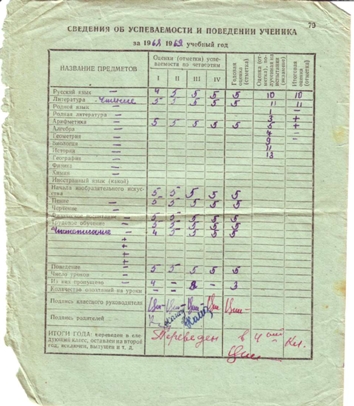 73
СВЕДЕНИЯ ОБ УСПЕВАЕМОСТИ И ПОВЕДЕНИИ УЧЕНИКА
за 1961/1962 учебный год
НАЗВАНИЕ ПРЕДМЕТОВ
Оценки (отметки) успеваемости по четвертям
I II III IV
Годовая оценка (отметка)
Итоговая оценка (отметка)
Русский язык — 4 5 5 5 5 10 10
Литература Чтение 5 5 5 5 5 11 11
Родной язык — 1 —
Родная литература — 3 +
Арифметика — 5 5 5 5 5 5 +
Алгебра —
Геометрия —
Биология —
История — 11
География — 13
Физика —
Химия —
Иностранный язык (какой)
Начала изобразительного искусства 5 5 5 5 5
Пение — 5 5 5 5 5
Черчение —
5 5 5 5 5
обучение 5 5 5 5 5
Чистописание 4 5 5 5 5
Поведение — 5 5 5 5 5
Число уроков —
Из них пропущено 4 — 8 — 3
Количество опозданий на уроки —
Подпись классного руководителя
Подпись родителей —
ИТОГИ ГОДА: переведен в следующий класс, оставлен на второй год, исключен, выпущен и т. д.
Переведен в 4 ый Кл.